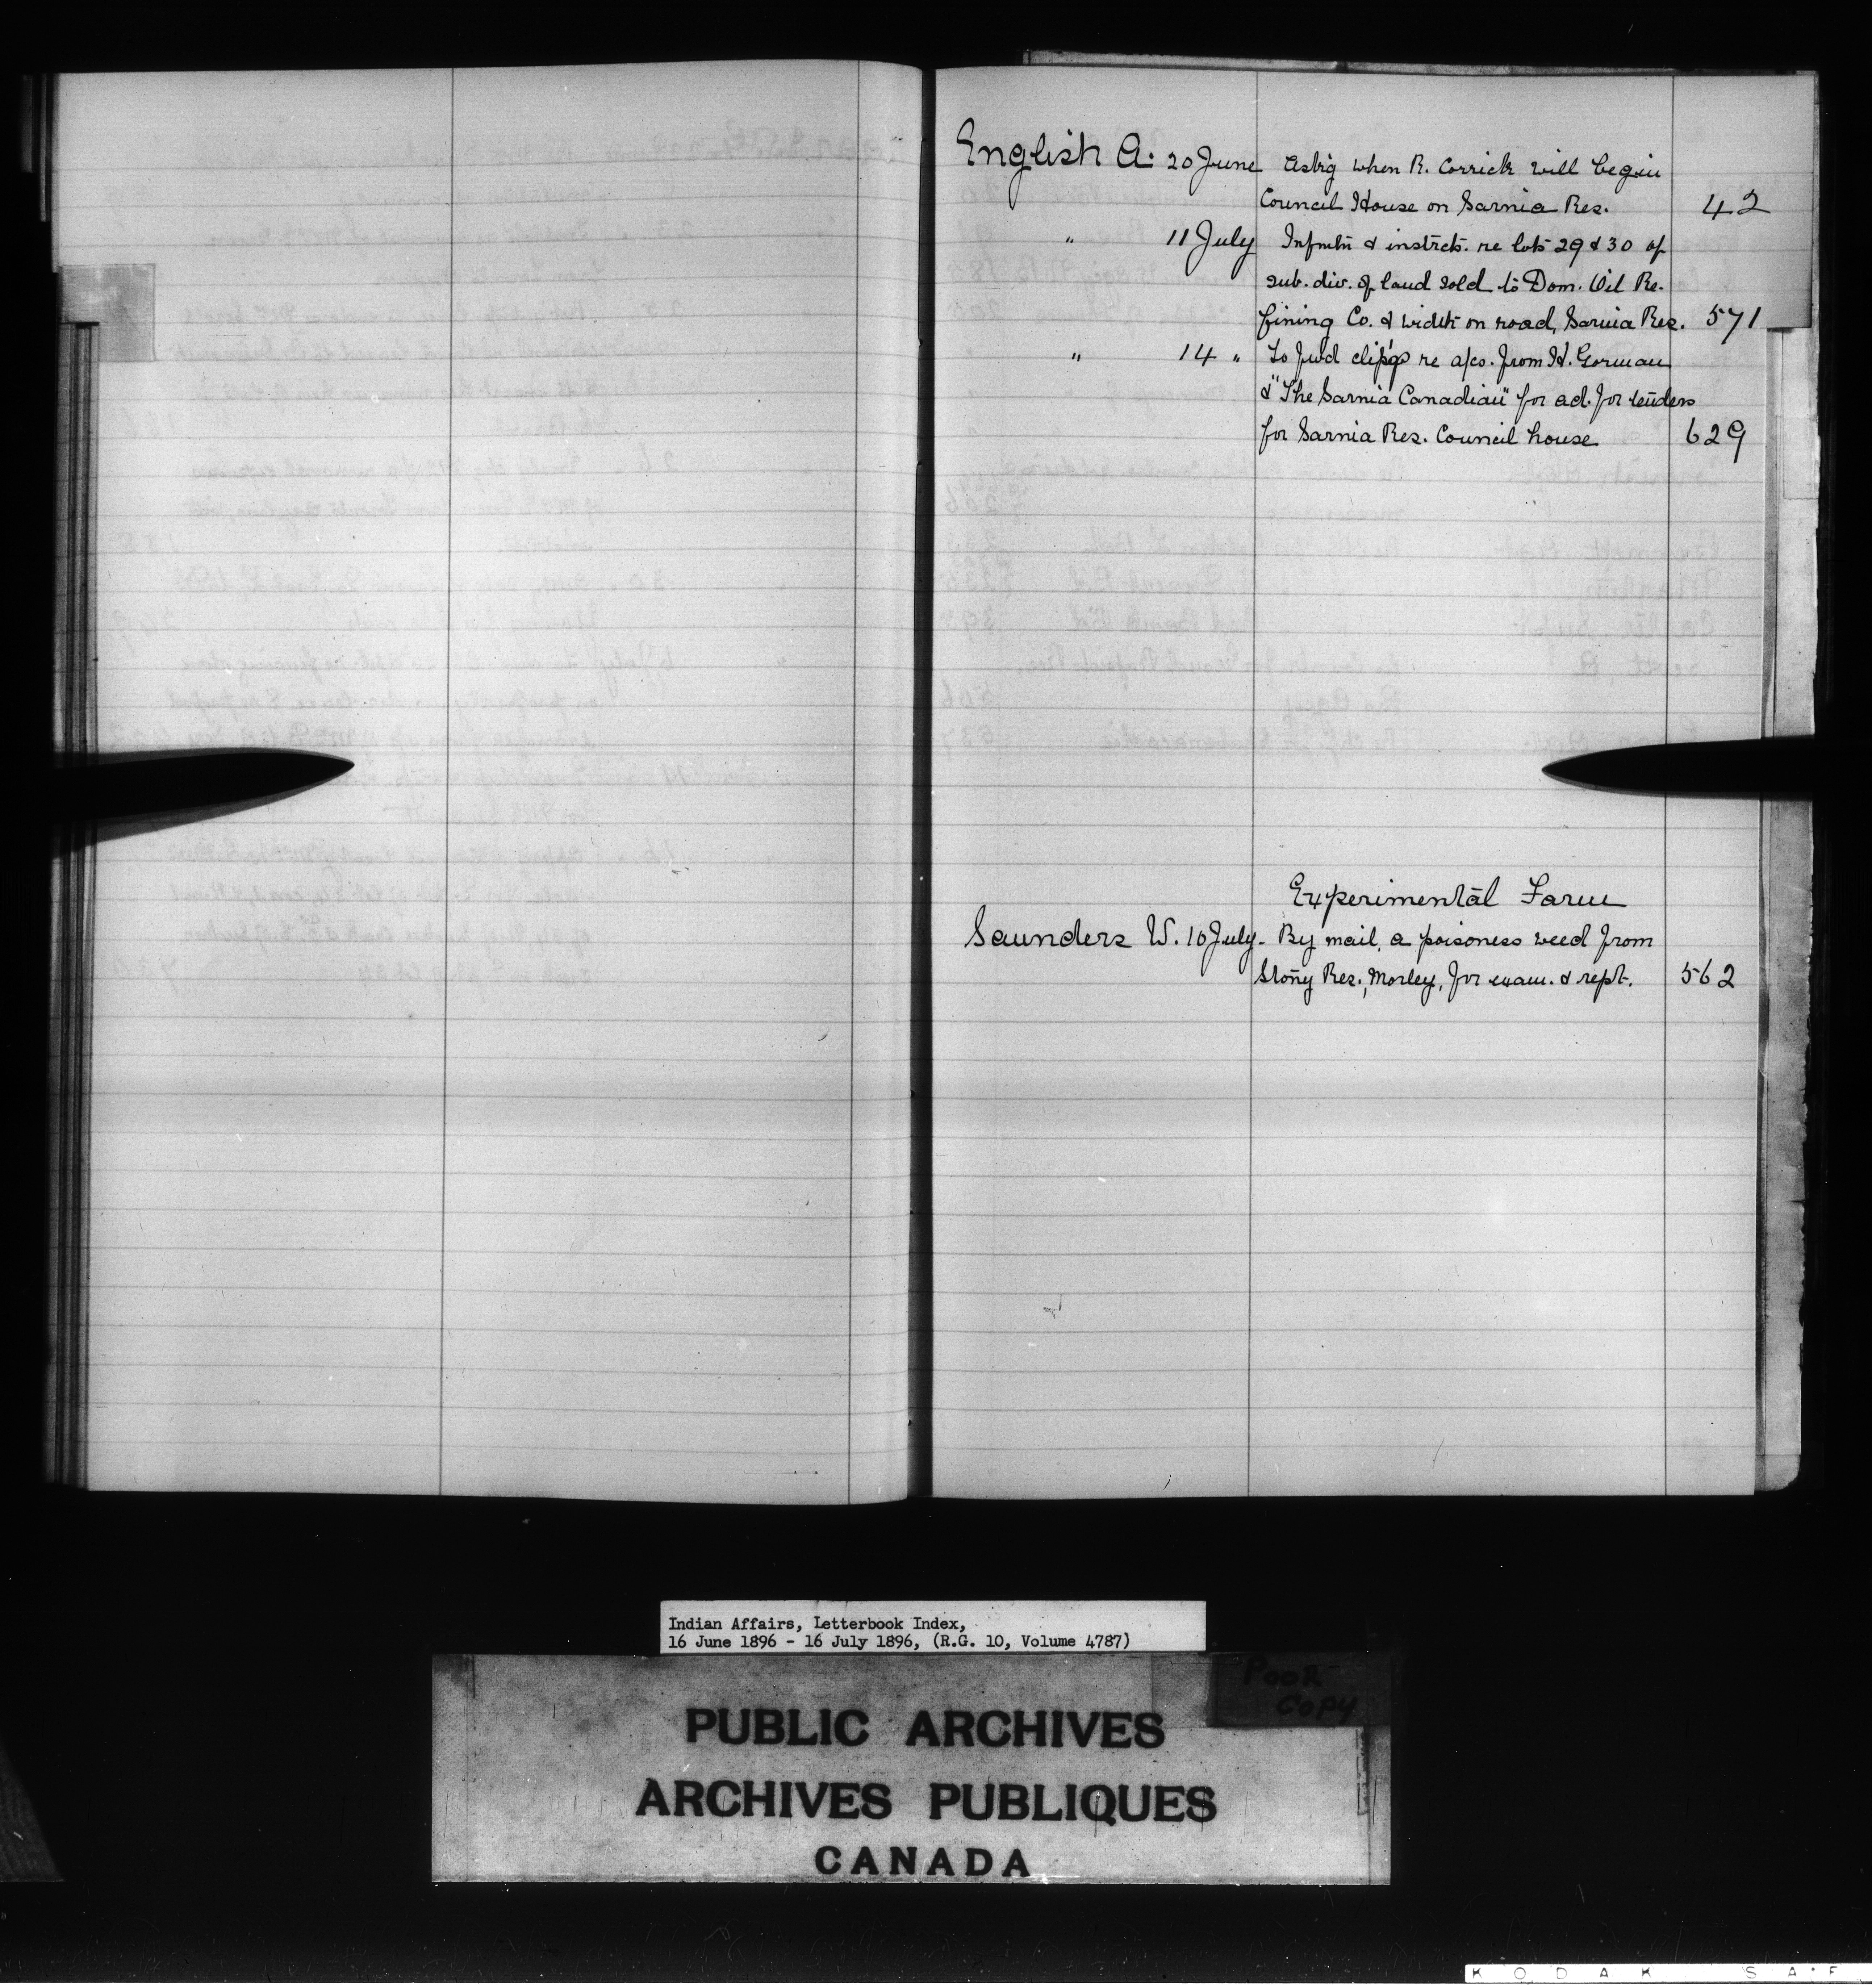 English A. 20 June Ask'g when R. Corrick will begin
Council House on Sarnia Res. 42
" 11 July Infmtn & instrcts. re lots 29 & 30 of
sub. div. of land sold to Dom. Oil Re-
fining Co. & width on road, Sarnia Res. 571
" 14 " To fwd clip'gs re a/cs. from H. Gorman
& "The Sarnia Canadian" for ad. for tenders
for Sarnia Res. Council house 629
Experimental Farm
Saunders W. 10 July - By mail, a poisoness weed from
Stony Res., Morley, for exam. & rept. 562
Indian Affairs, Letterbook Index,
16 June 1896 - 16 July 1896, (R.G. 10, Volume 4787)
POOR
COPY
PUBLIC ARCHIVES
ARCHIVES PUBLIQUES
CANADA
KODAK SAF